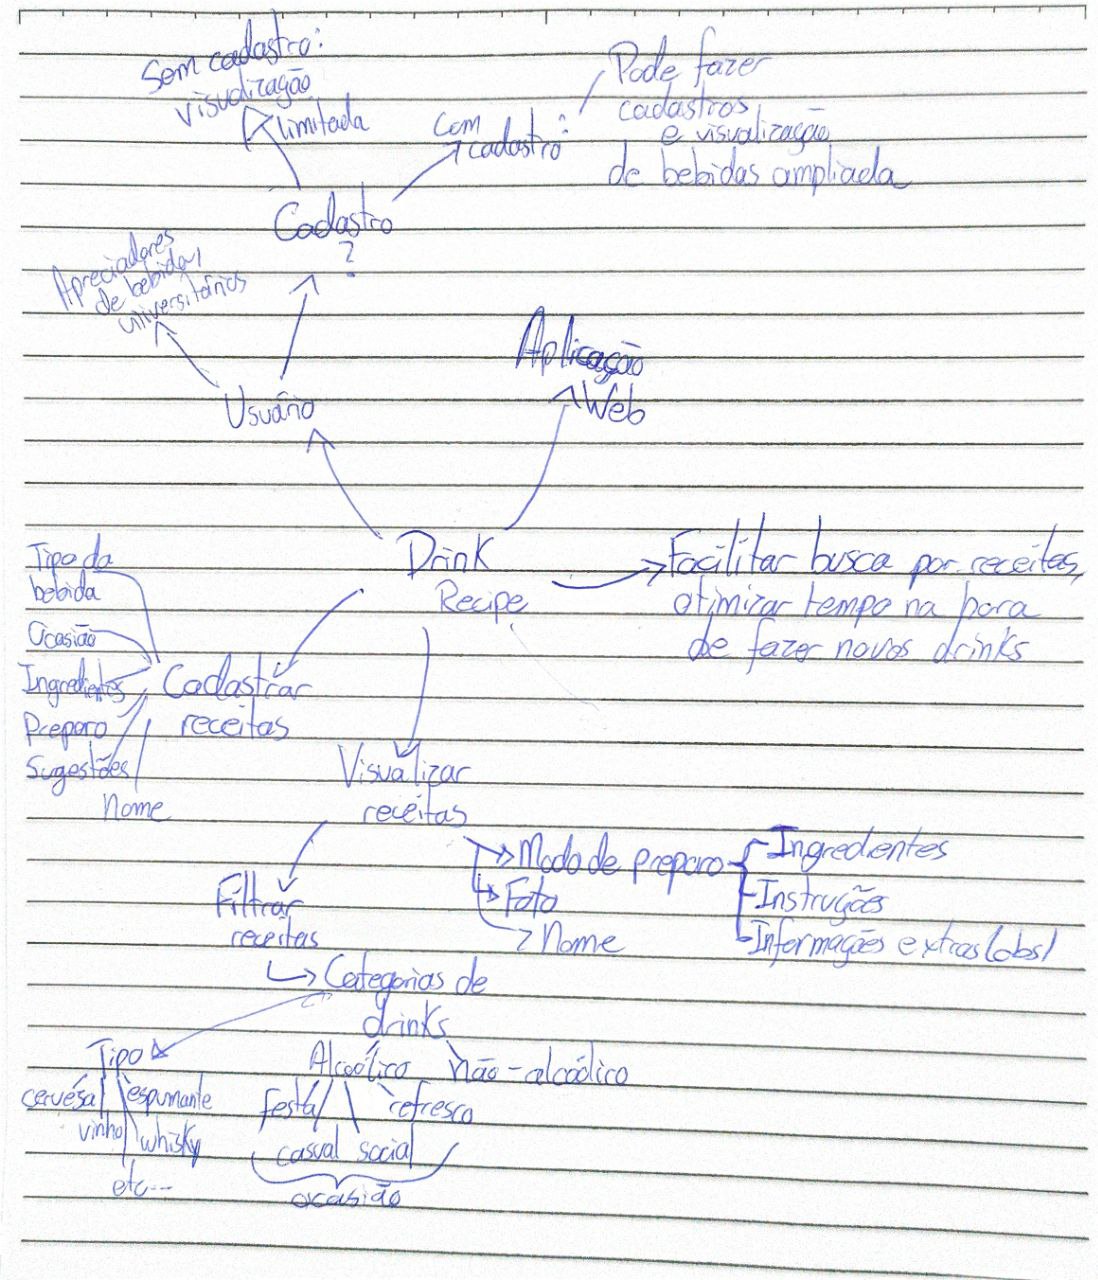 Sem cadastro:
visualização
limitada
Com
cadastro:
Pode fazer
cadastros
e visualização
de bebidas ampliada
Cadastro
?
Apreciadores
de bebida/
universitários
Usuário
Aplicação
Web
Drink
Recipe
Facilitar busca por receitas,
otimizar tempo na hora
de fazer novos drinks
Tipo da
bebida
Ocasião
Ingredientes
Preparo
Sugestões
Nome
Cadastrar
receitas
Visualizar
receitas
Modo de preparo
Foto
Nome
Ingredientes
Instruções
Informações extras (obs)
Filtrar
receitas
Categorias de
drinks
Tipo
cervesa
espumante
vinho
whisky
etc...
Alcoólico
Não-alcoólico
festa
refresco
casual social
ocasião